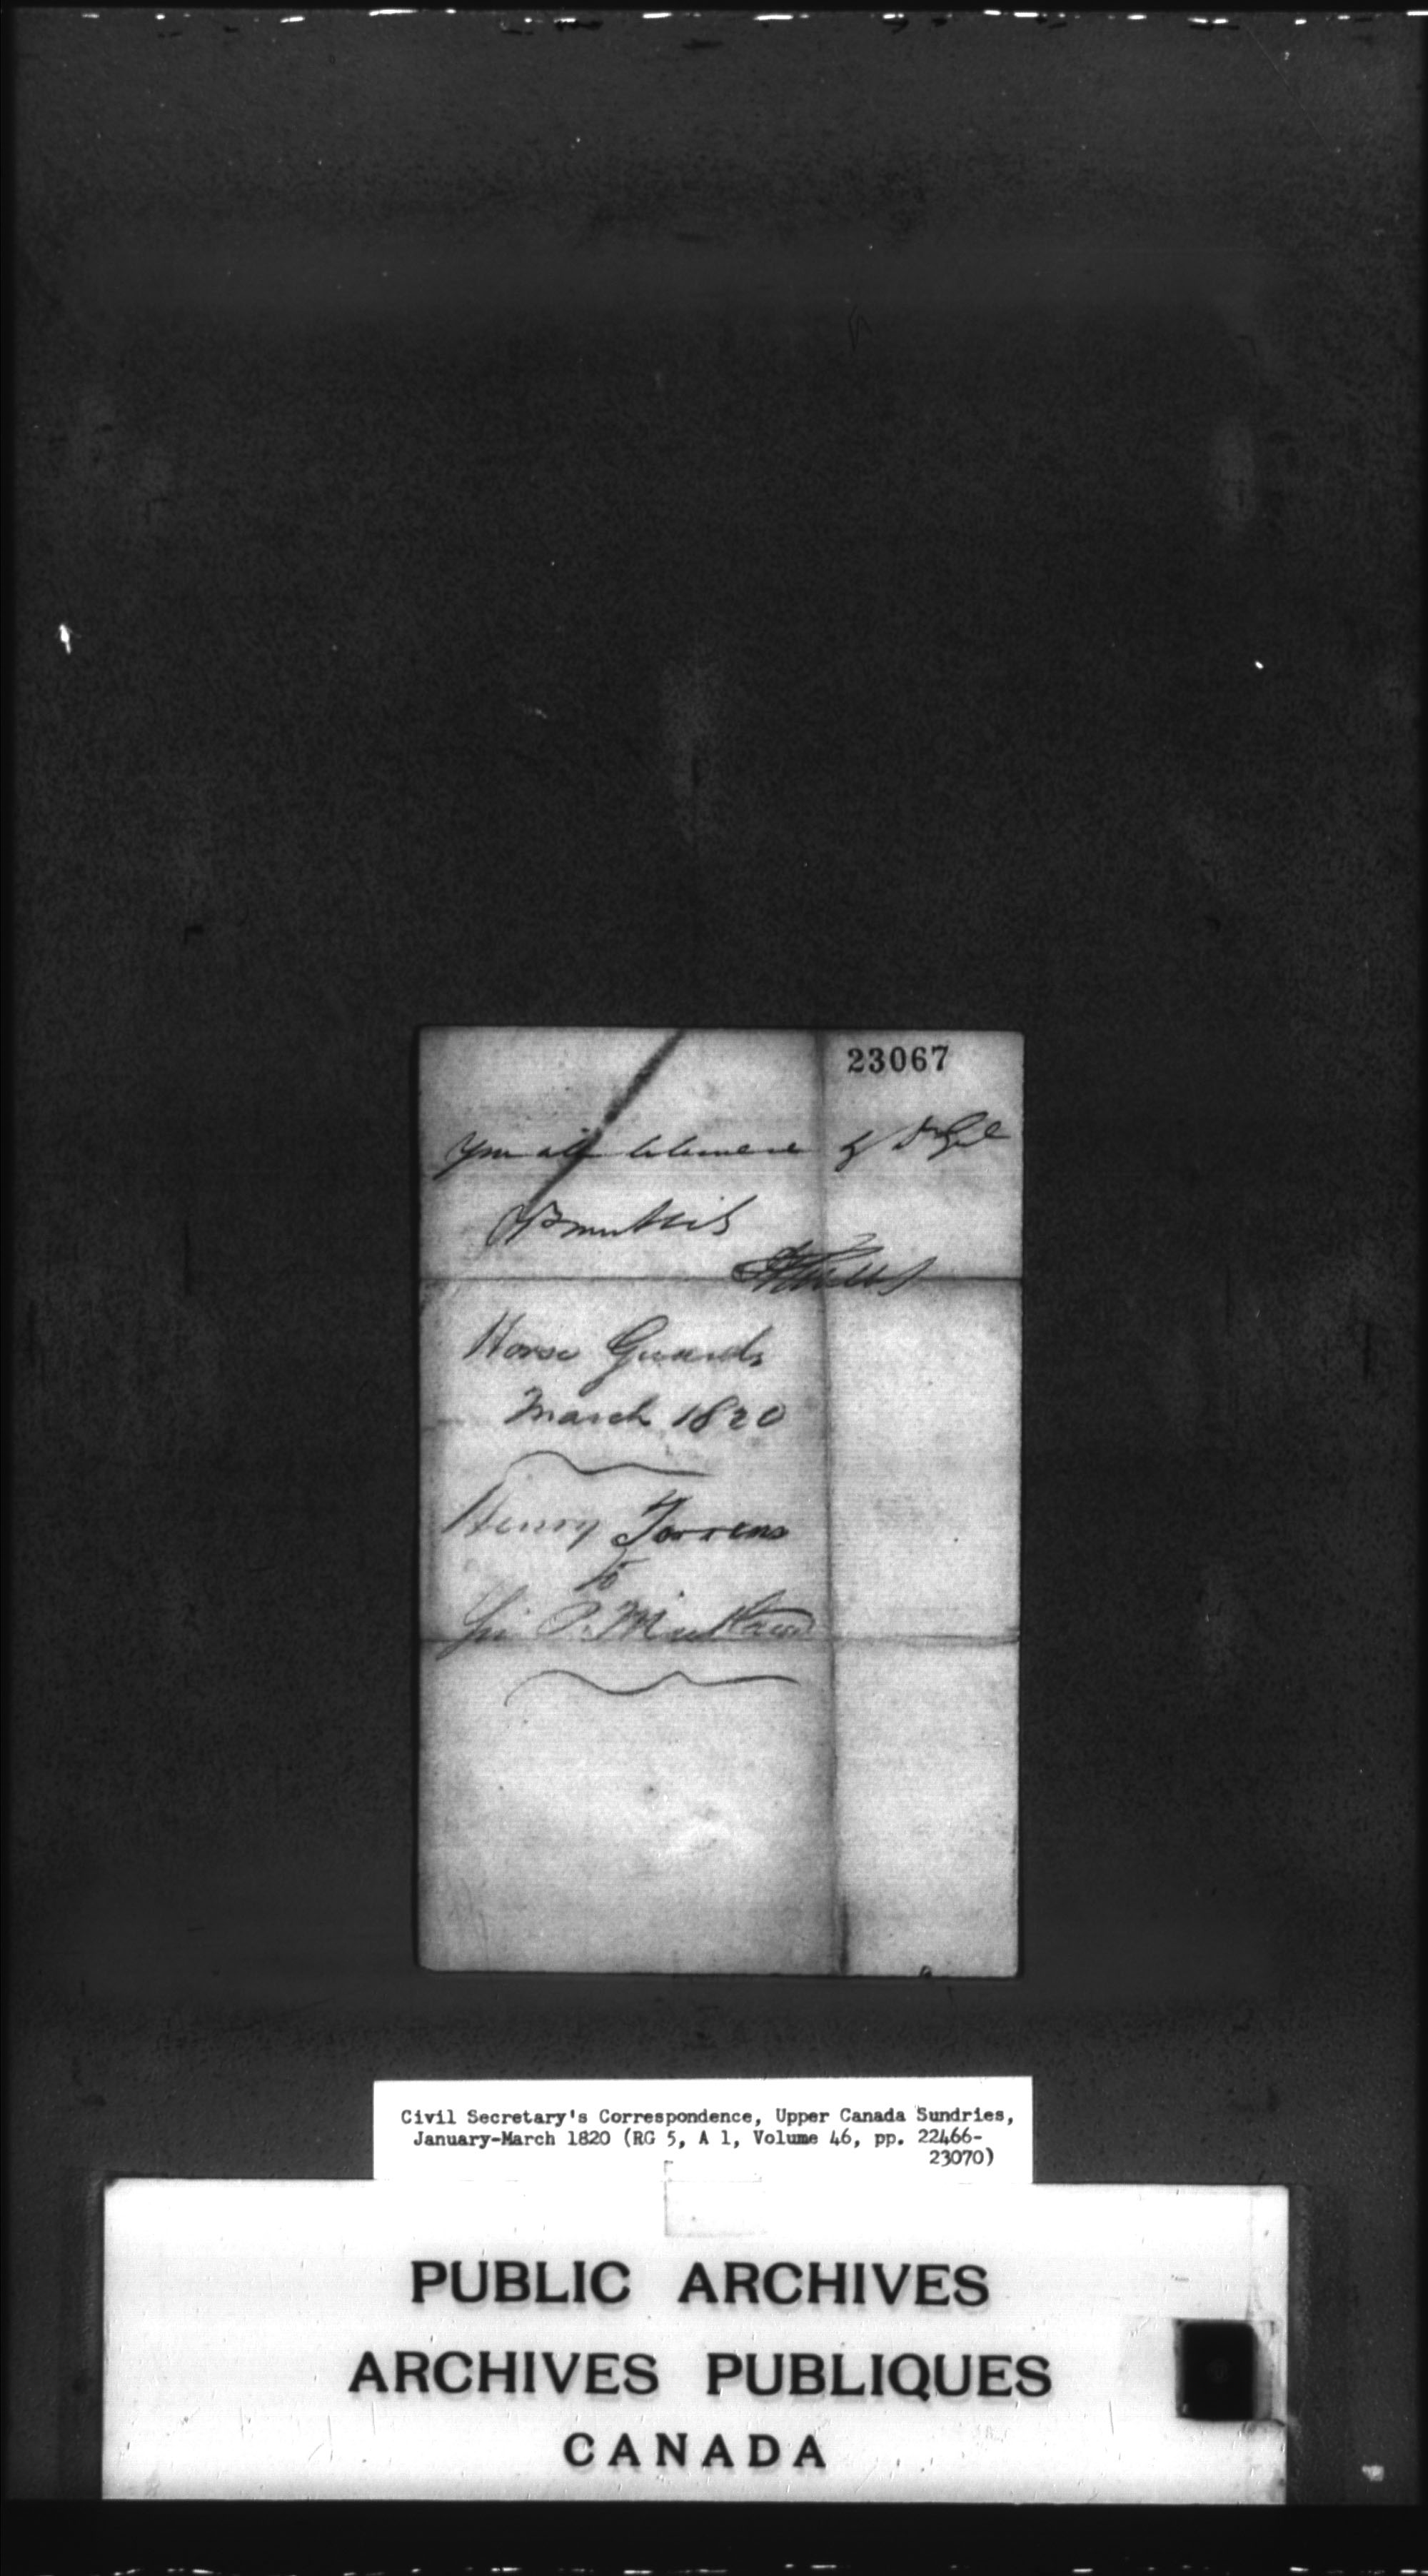 23067
Horse Guards
March 1820
Henry Torrens
to
Sir P. Maitland
Civil Secretary's Correspondence, Upper Canada Sundries,
January-March 1820 (RG 5, A 1, Volume 46, pp. 22466-
23070)
PUBLIC ARCHIVES
ARCHIVES PUBLIQUES
CANADA